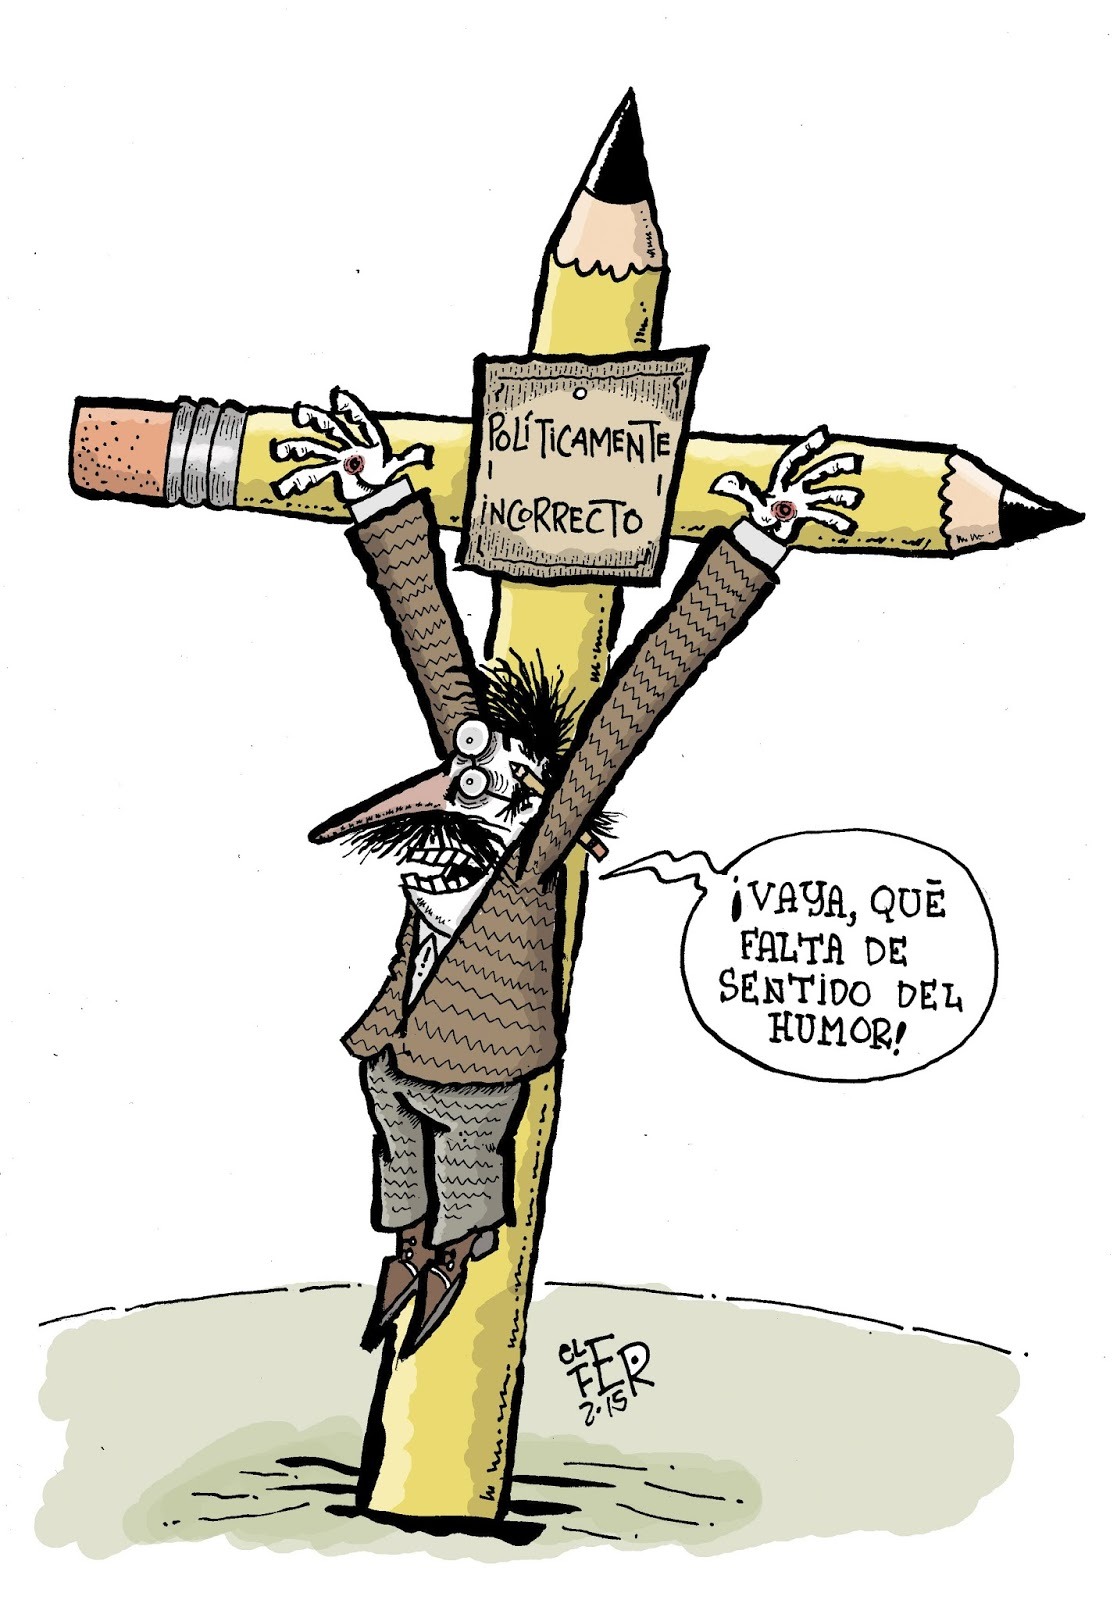 POLÍTICAMENTE
INCORRECTO
¡VAYA, QUÉ
FALTA DE
SENTIDO DEL
HUMOR!
EL
FER
2.15